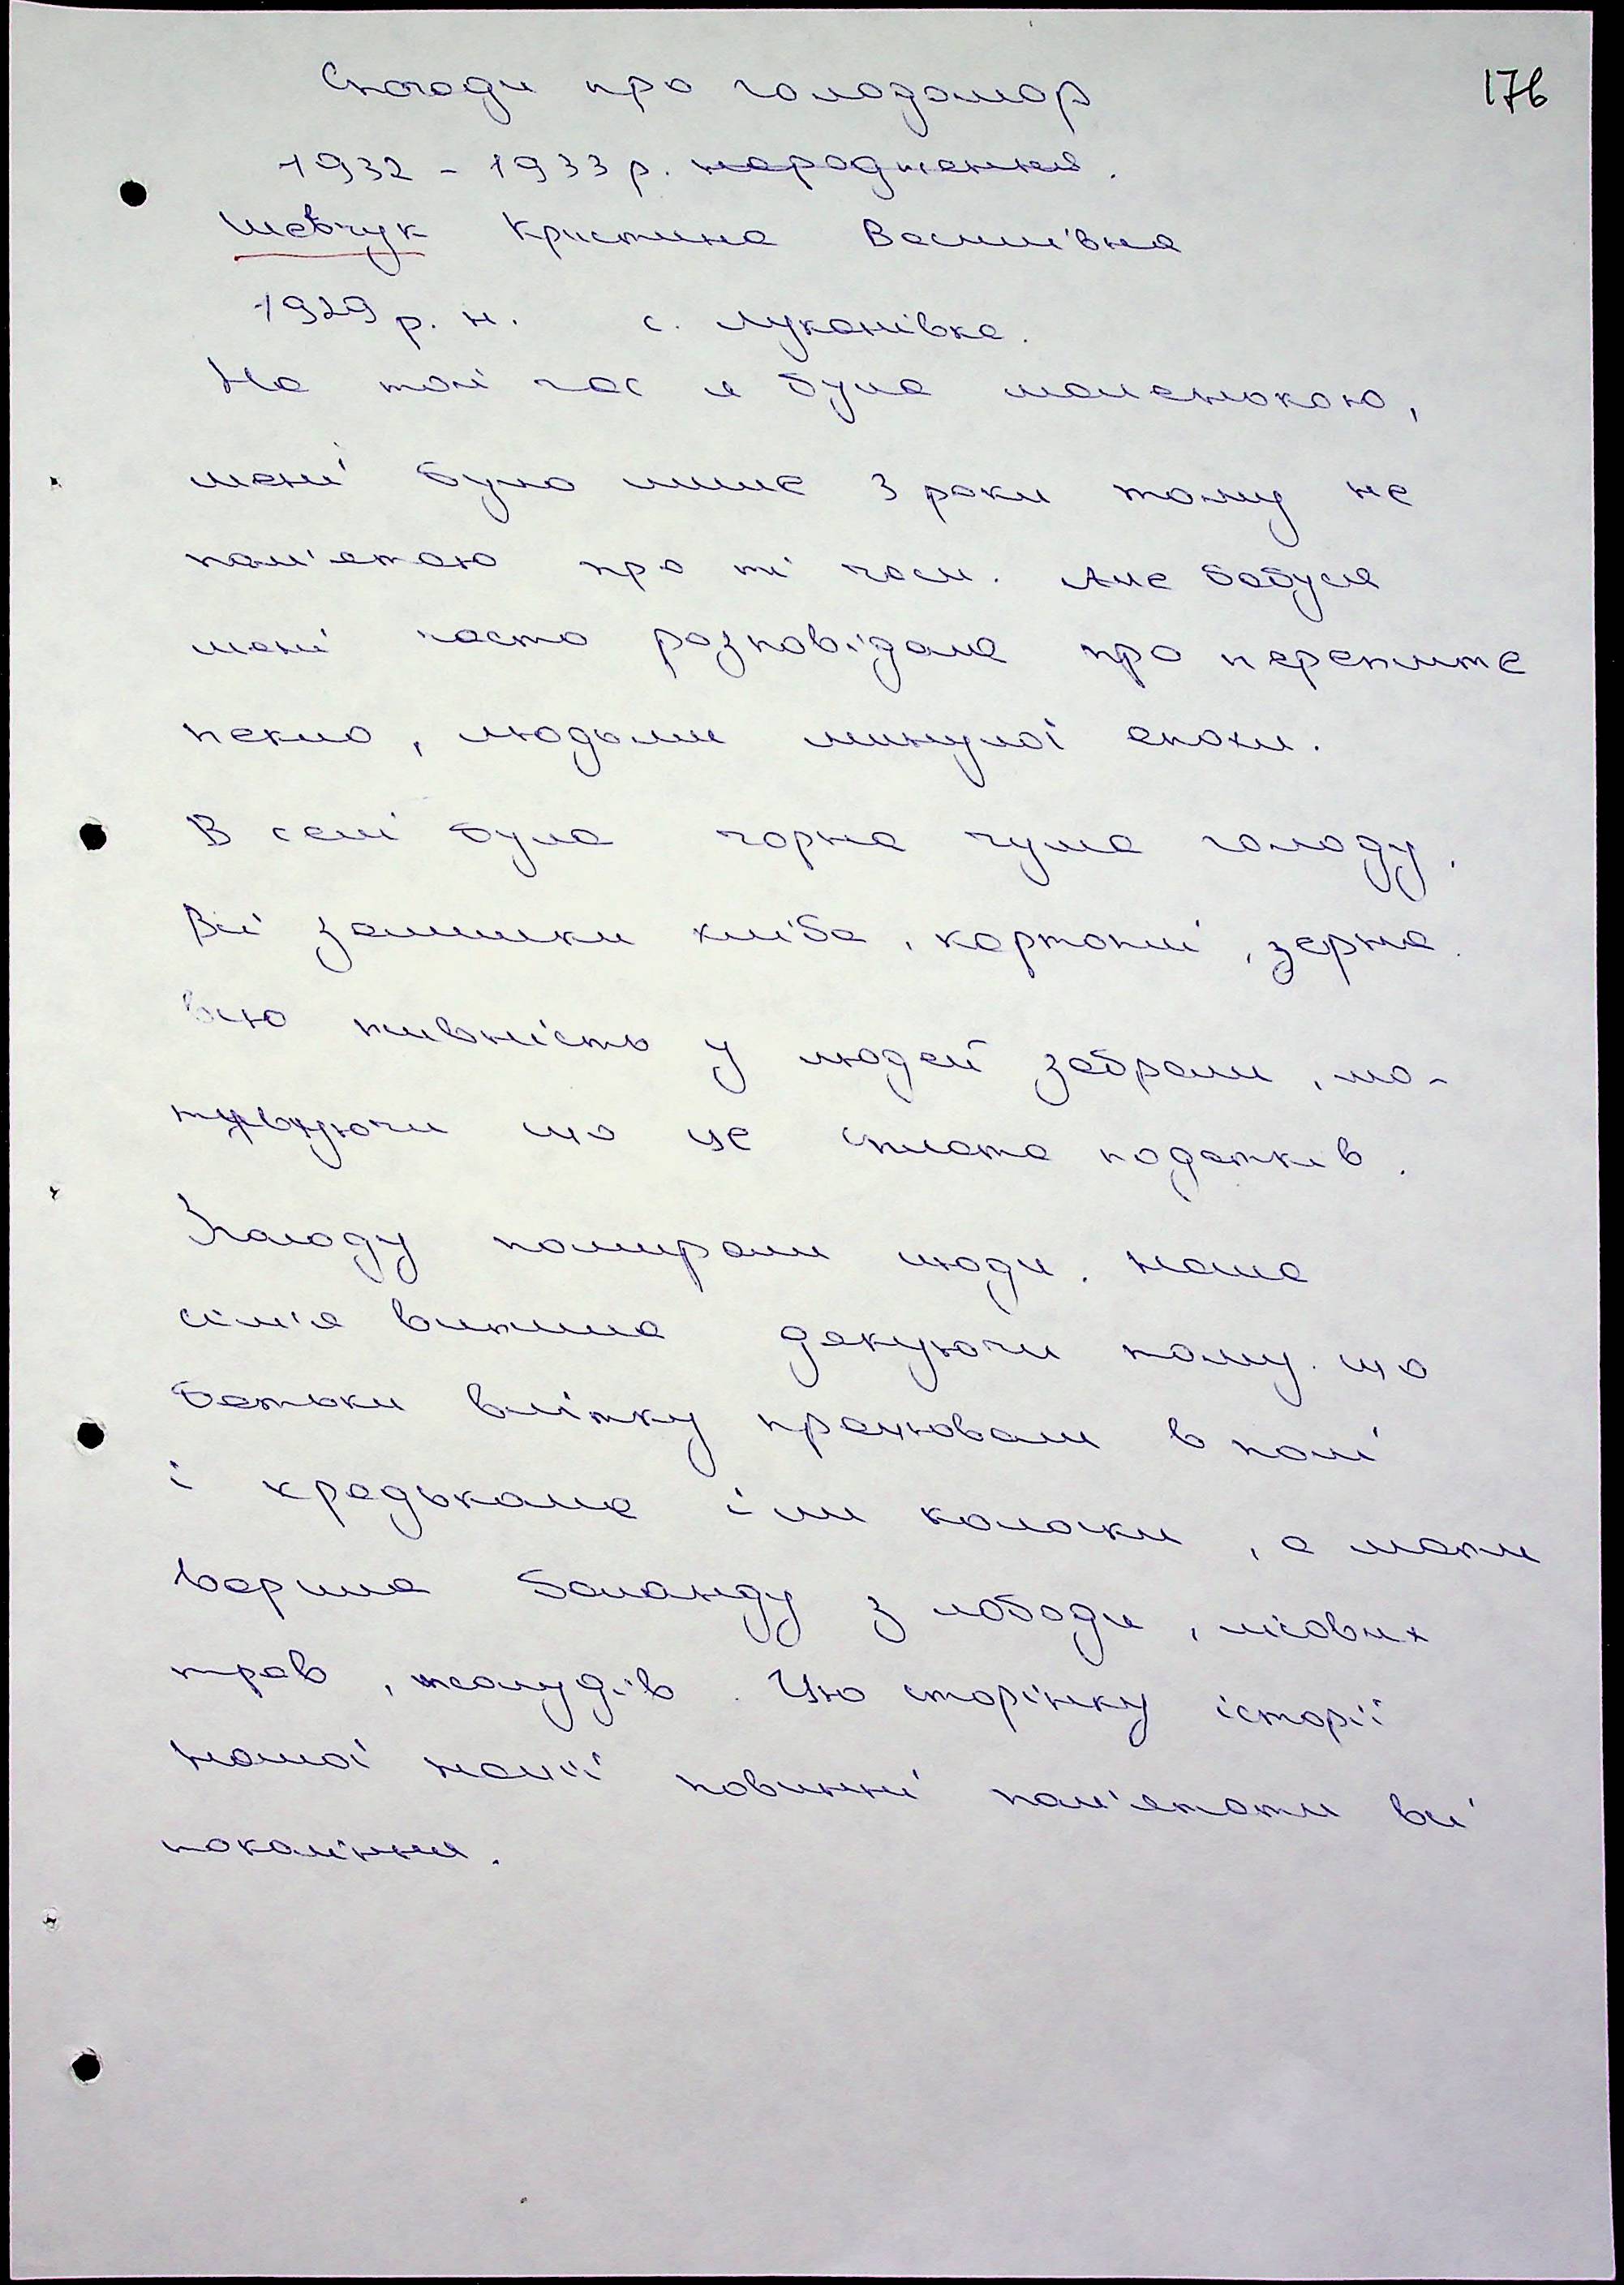 Спогади про голодомор
176
1932 - 1933 р. народження.
Шевчук Кристина Василівна
1929 р. н. с. Луканівка.
На той час я була маленькою,
мені було лише 3 роки тому не
пам'ятаю про ті часи. Але бабуся
мені часто розповідала про пережите
пекло, людьми минулої епохи.
В селі була чорна чума голоду.
Всі залишки хліба, картоплі, зерна
всю живність у людей забрали, мо-
тивуючи що це сплата податків.
З голоду помирали люди. Наша
сім'я вижила дякуючи тому що
батьки влітку працювали в полі
і крадькома їли колоски, а мати
варила баланду з лободи, лісових
трав, жолудів. Цю сторінку історії
нашої нації повинні пам'ятати всі
покоління.